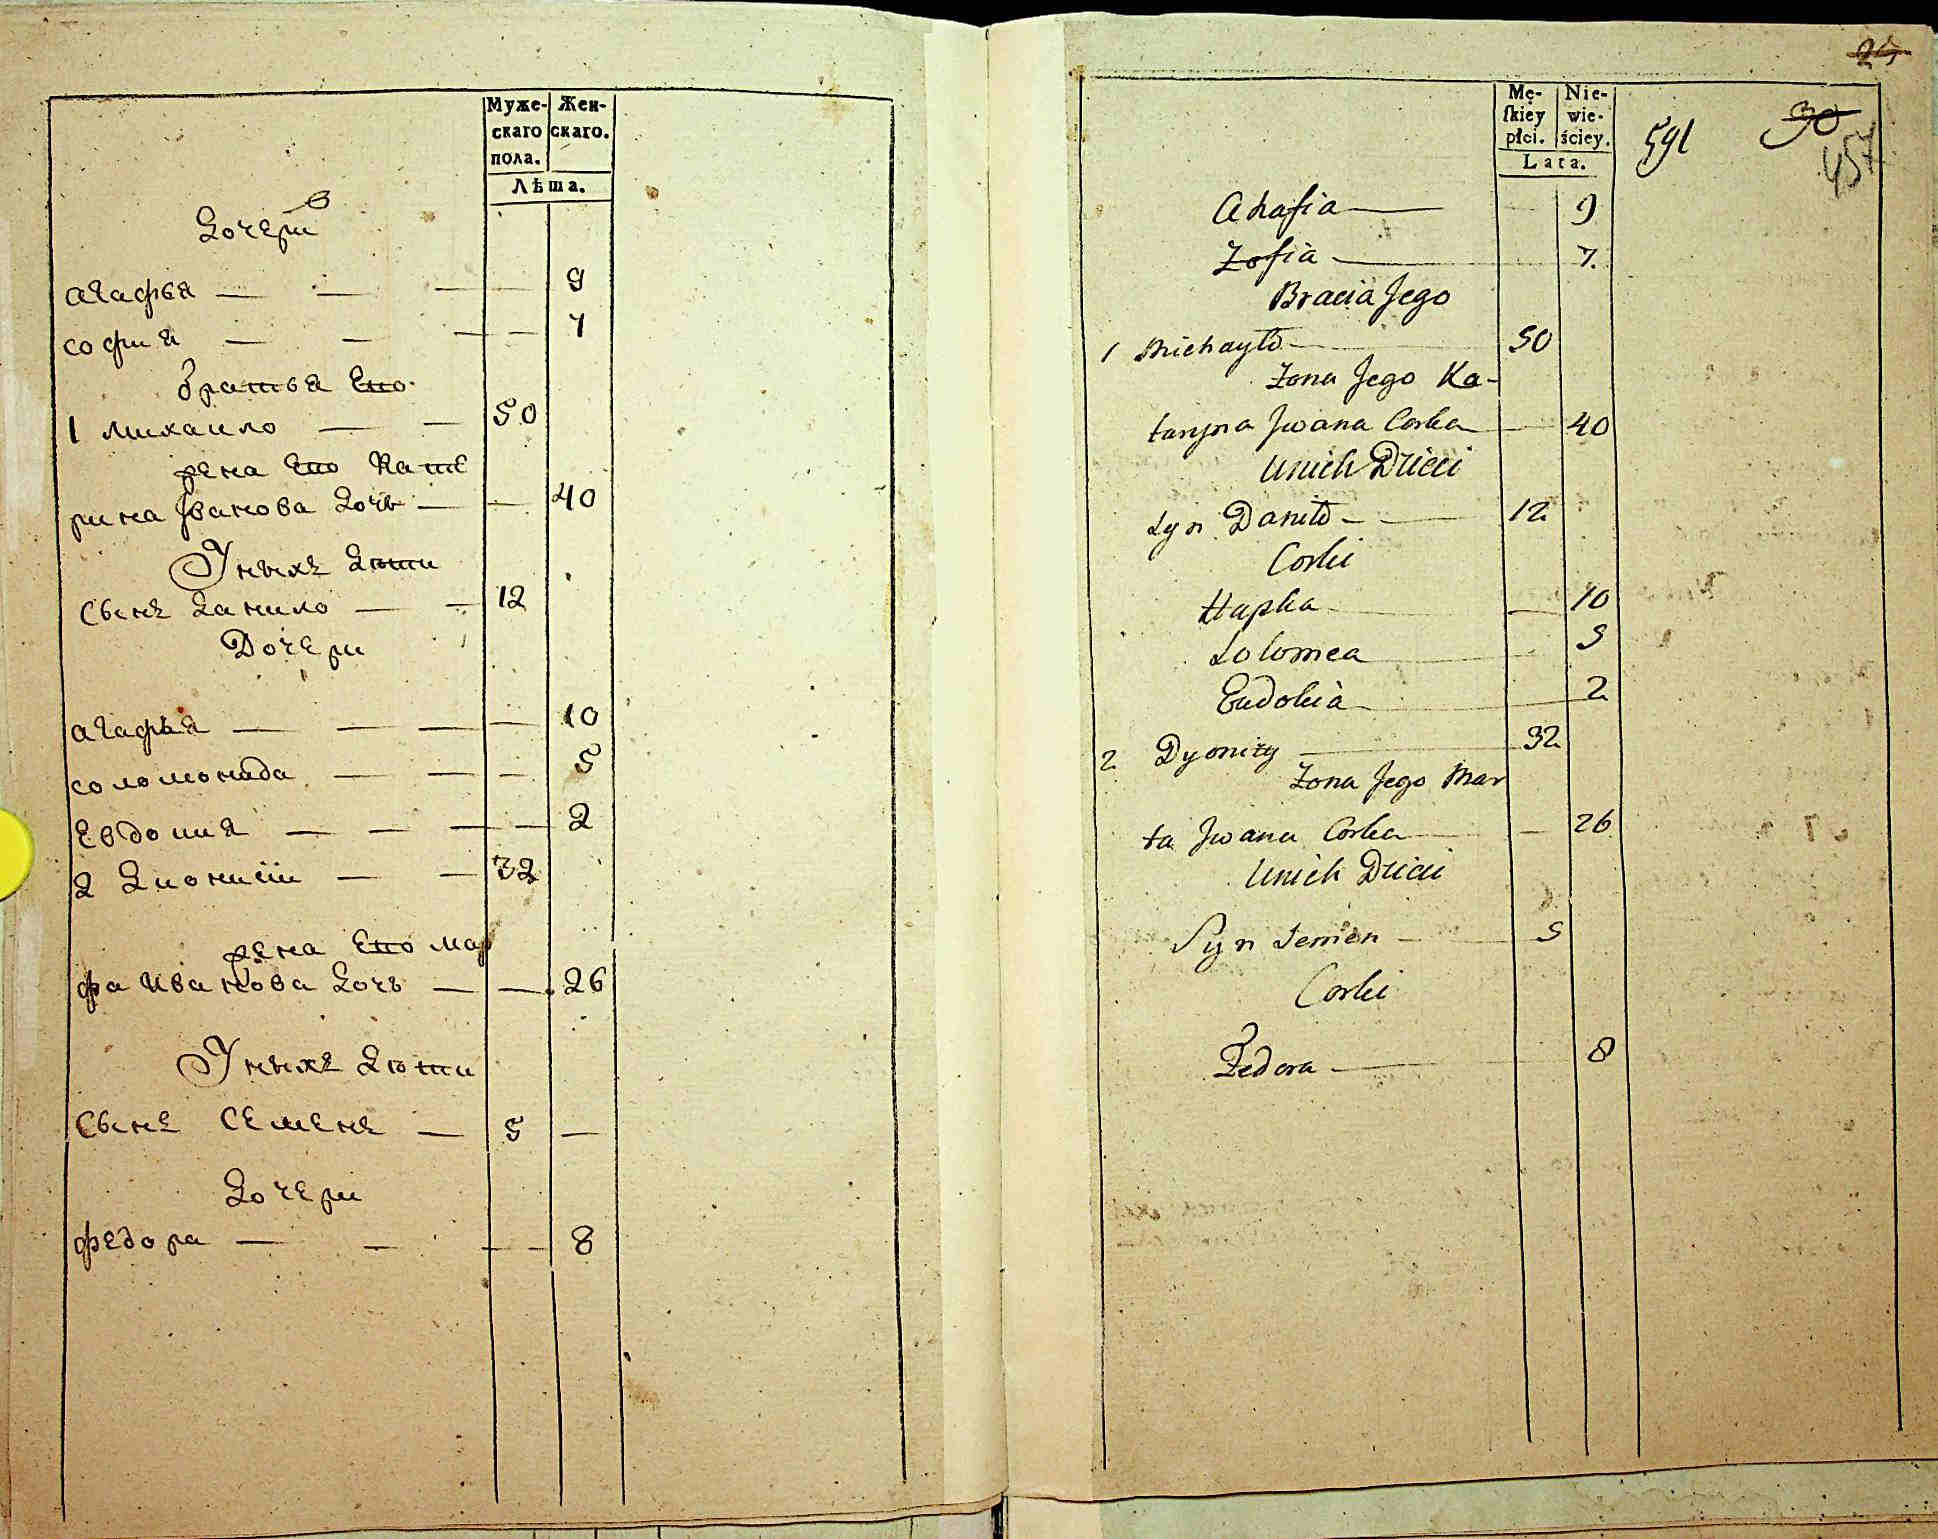 Муже-
скаго
пола.
Жен-
скаго.
Лѣта.
Дочери
агафья — — — — 9
софия — — — — 7
братья Его
1 михаило — — 50
жена Его Кате
рина Іванова Дочь — — 40
У ныхъ Дѣти
сынъ Данило — — 12
Дочери
агафья — — — — 10
соломонида — — — — 5
Евдокия — — — — 2
2 Дионисій — — 32
жена Его мар
фа Иванова Дочь — — 26
У ныхъ Дѣти
сынъ Семенъ — 5 —
Дочери
федора — — — — 8
24
Mę-
ſkiey
płci.
Nie-
wie-
ściey.
Lata.
591
30
457
Ahafia — — 9
Zofia — 7.
Bracia Jego
1 Michayło — 50
Zona Jego Ka-
taryna Jwana Corka — 40
Unich Dzieci
Syn Daniło — — 12
Corki
Hapka — 10
Solomea — 5
Eudokia — 2
2 Dyonizy — 32
Zona Jego Mar
ta Jwana Corka — — 26
Unich Dzieci
Syn Semen — 5
Corki
Fedora — 8